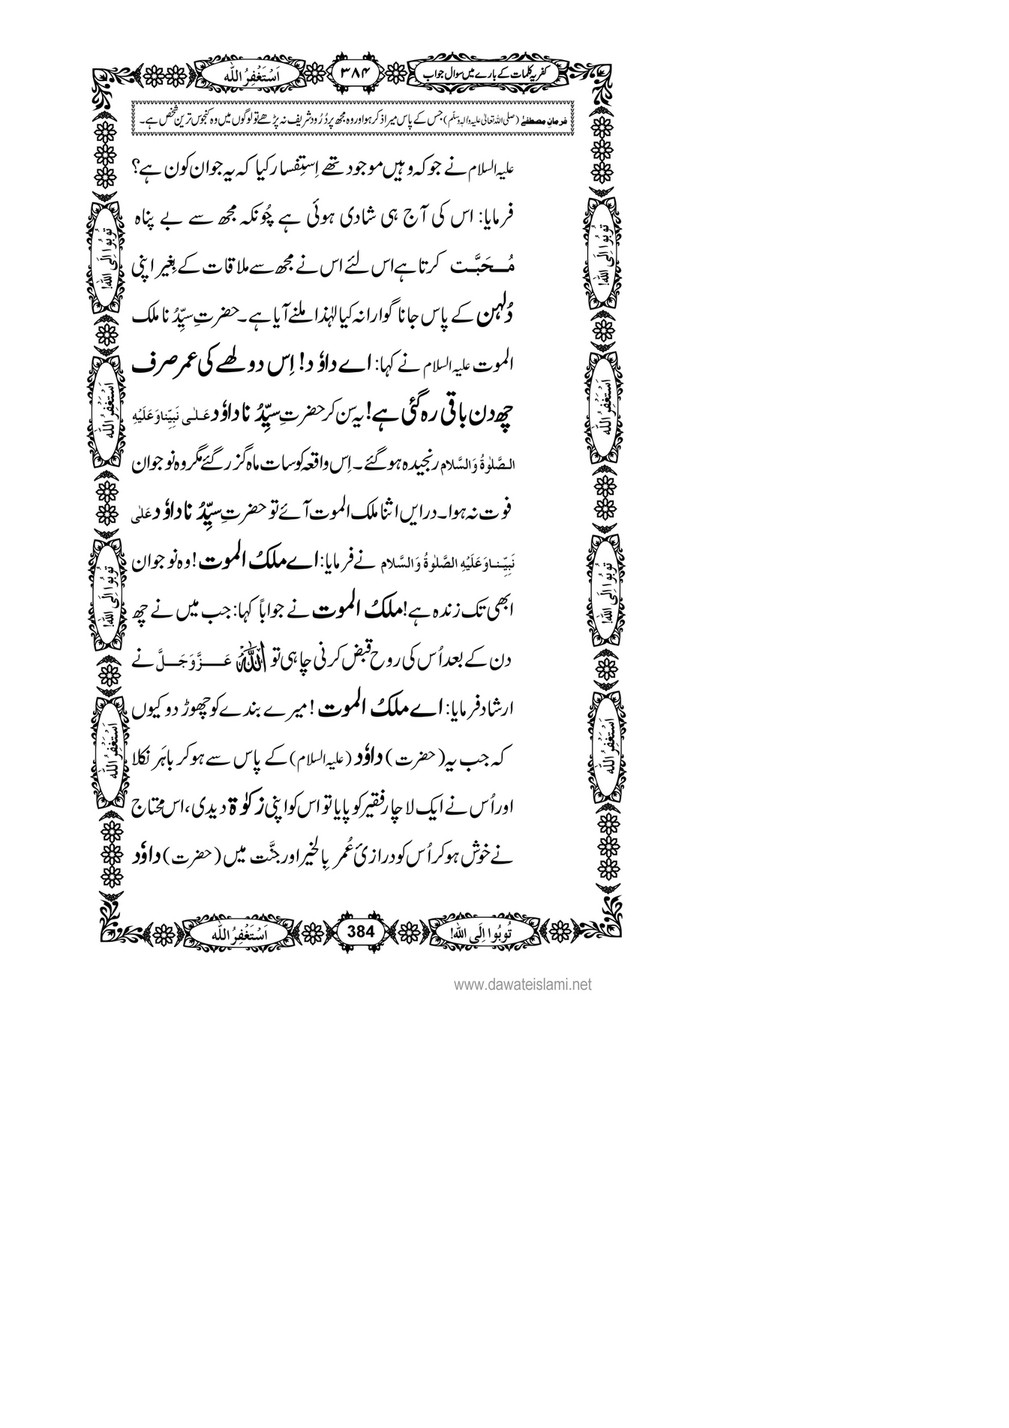 کفریہ کلمات کے بارے میں سوال جواب ۳۸۴ اَسْتَغْفِرُ اللّٰہ
فرمانِ مصطفٰے (صلی اللہ تعالیٰ علیہ واٰلہٖ وسلّم) جس کے پاس میرا ذکر ہوا اور وہ مجھ پر دُرُود شریف نہ پڑھے تو لوگوں میں وہ کنجوس ترین شخص ہے۔
علیہ السلام نے جو کہ وہیں موجود تھے اِستِفسار کیا کہ یہ جوان کون ہے؟
فرمایا: اس کی آج ہی شادی ہوئی ہے چُونکہ مجھ سے بے پناہ
مُحَبَّت کرتا ہے اس لئے اس نے مجھ سے ملاقات کے بِغیر اپنی
دُلہن کے پاس جانا گوارا نہ کیا لہٰذا ملنے آیا ہے۔ حضرتِ سیِّدُنا ملک
الموت علیہ السلام نے کہا: اے داوٗد! اِس دولھے کی عمر صرف
چھ دن باقی رہ گئی ہے! یہ سن کر حضرتِ سیِّدُنا داوٗد عَلٰی نَبِیِّنا وَعَلَیْہِ
الصَّلٰوۃُ وَالسَّلام رنجیدہ ہو گئے۔ اِس واقعہ کو سات ماہ گزر گئے مگر وہ نوجوان
فوت نہ ہوا۔ دراِیں اثنا ملک الموت آئے تو حضرتِ سیِّدُنا داوٗد عَلٰی
نَبِیِّنا وَعَلَیْہِ الصَّلٰوۃُ وَالسَّلام نے فرمایا: اے ملکُ الموت! وہ نوجوان
ابھی تک زندہ ہے! ملکُ الموت نے جواباً کہا: جب میں نے چھ
دن کے بعد اُس کی روح قبض کرنی چاہی تو اللّٰہ عَزَّوَجَلَّ نے
ارشاد فرمایا: اے ملکُ الموت! میرے بندے کو چھوڑ دو کیوں
کہ جب یہ (حضرت) داوٗد (علیہ السلام) کے پاس سے ہو کر باہَر نکلا
اور اُس نے ایک لاچار فقیر کو پایا تو اس کو اپنی زکوٰۃ دیدی، اس محتاج
نے خوش ہو کر اُس کو درازیٔ عُمر بِالخیر اور جنَّت میں (حضرت) داوٗد
تُوبُوا اِلَی اللّٰہ!
اَسْتَغْفِرُ اللّٰہ
تُوبُوا اِلَی اللّٰہ!
اَسْتَغْفِرُ اللّٰہ
تُوبُوا اِلَی اللّٰہ!
اَسْتَغْفِرُ اللّٰہ
تُوبُوا اِلَی اللّٰہ!
اَسْتَغْفِرُ اللّٰہ
تُوبُوا اِلَی اللّٰہ! 384 اَسْتَغْفِرُ اللّٰہ
www.dawateislami.net